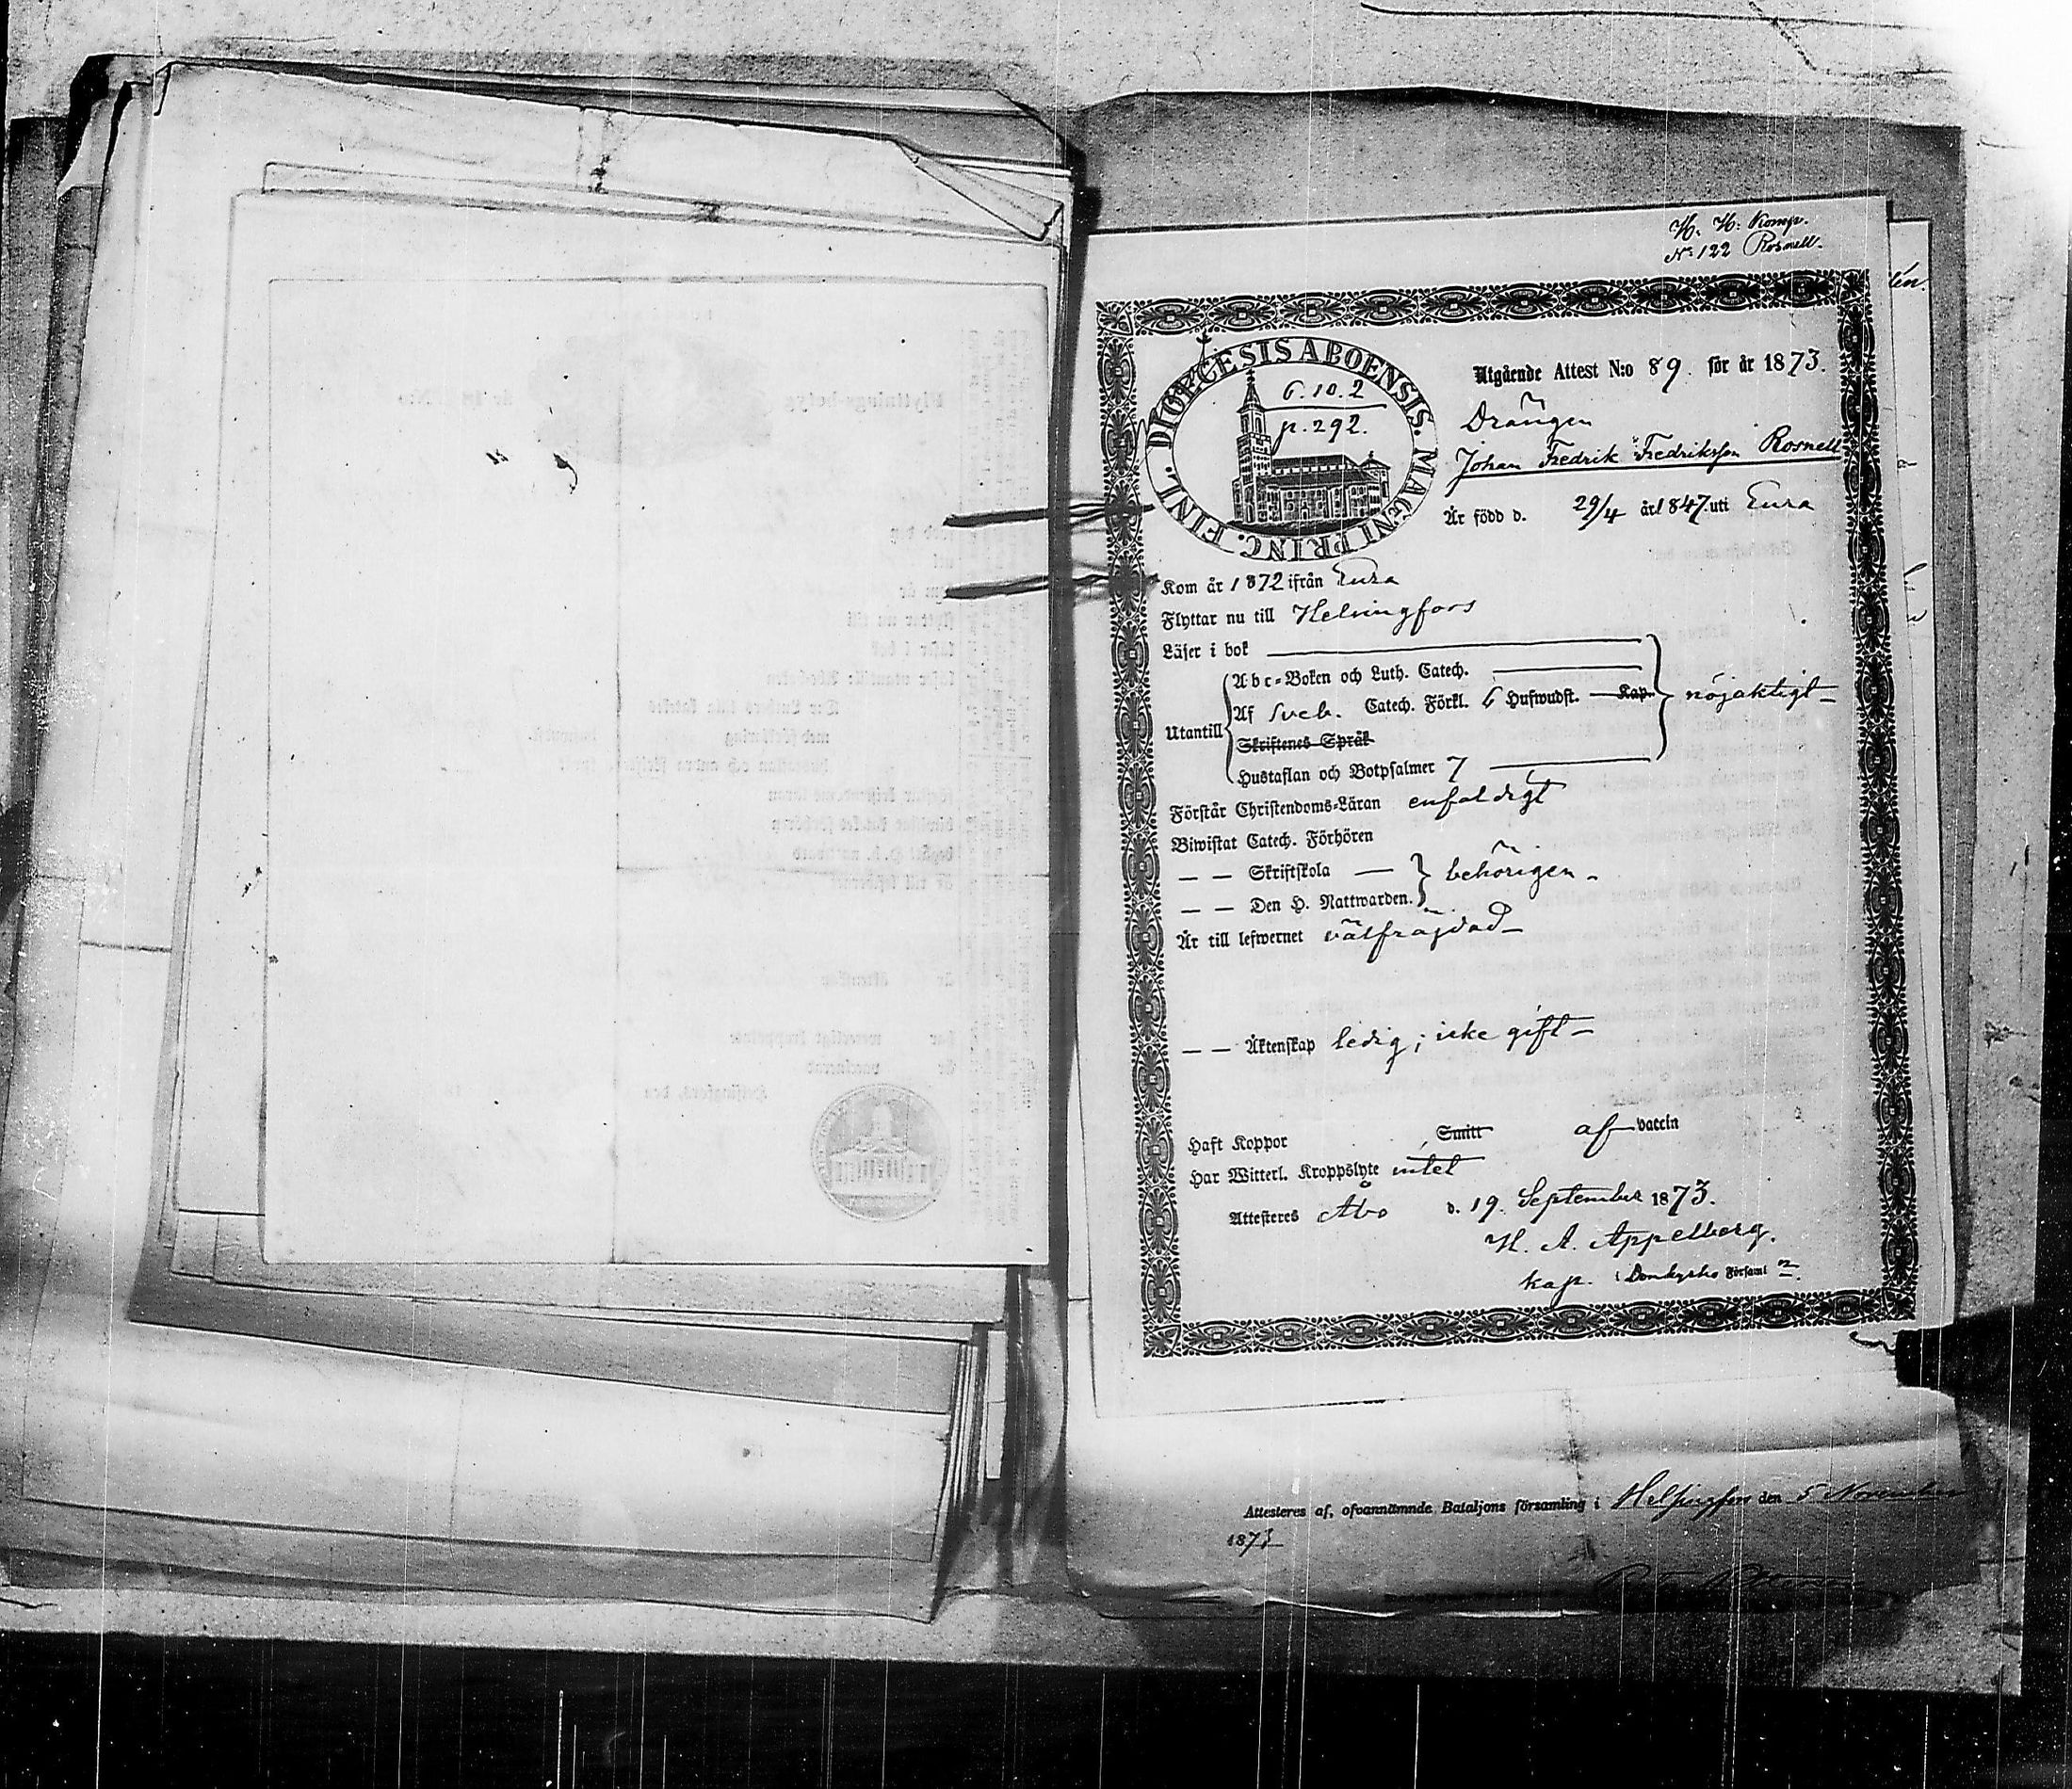 H. H: Komp.
No: 122 Rosnell.
DIOECESIS ABOENSIS. MAGNI PRINC. FINL.
6.10.2
p. 292.
Utgående Attest N:o 89. för år 1873.
Drängen
Johan Fredrik Fredriksson Rosnell
Är född d. 29/4 år 1847 uti Eura
Kom år 1872 ifrån Eura
Flyttar nu till Helsingfors
Läser i bok
Abc-Boken och Luth. Catech.
Utantill Af Sveb. Catech. Förkl. 6 Hufwudst. Kap. nöjaktigt
Skriftenes Språk
Hustaflan och Botpsalmer 7
Förstår Christendoms-Läran enfaldigt
Biwistat Catech. Förhören
— — Skriftskola — behörigen
— — Den H. Nattwarden.
Är till lefwernet välfräjdad
— — Äktenskap ledig; icke gift
Haft Koppor Smitt af vaccin
Har Witterl. Kroppslyte intet
Attesteres Åbo d. 19. September 1873.
H. A. Appelberg.
kap. i Domkyrko Församl
Attesteres af, ofvannämnde Bataljons församling i Helsingfors den 5 November
1873